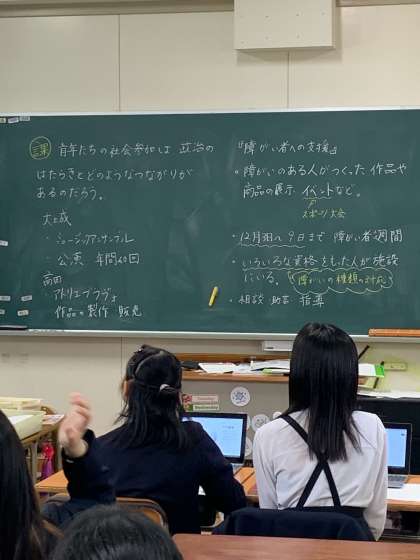 課 青年たちの社会参加は 政治の
はたらきとどのようなつながりが
あるのだろう。
大上誠
・ミュージックアンサンブル
・公演 年間40回
高田
・アトリエブラヴォ
作品の製作 販売
『障がい者への支援』
・障がいのある人がつくった作品や
商品の展示 イベントなど。
スポーツ大会
・12月3日〜9日まで 障がい者週間
・いろいろな資格をもした人が施設
にいる。(障がいの種類の対応)
・相談 助言 指導